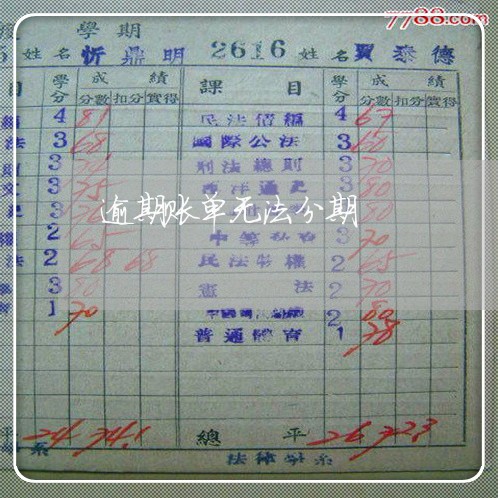 7788.com
學期
姓名 忻鼎明 2616 姓名 賈泰德
目 學分 成績 課目 學分 成績
分數 扣分 實得 分數 扣分 實得
4 81 民法債編 4 67
法 3 68 國際公法 3 60
3 刑法總則 3 70
3 75 西洋通史 80
逾期账单无法分期
2 65 3 70
法 2 68 68 民法物權 2 65
3 80 憲法 2 70
1 70 2 80
普通體育 1 78
平 24 74.1 總平 26 72.3
系 法律學系